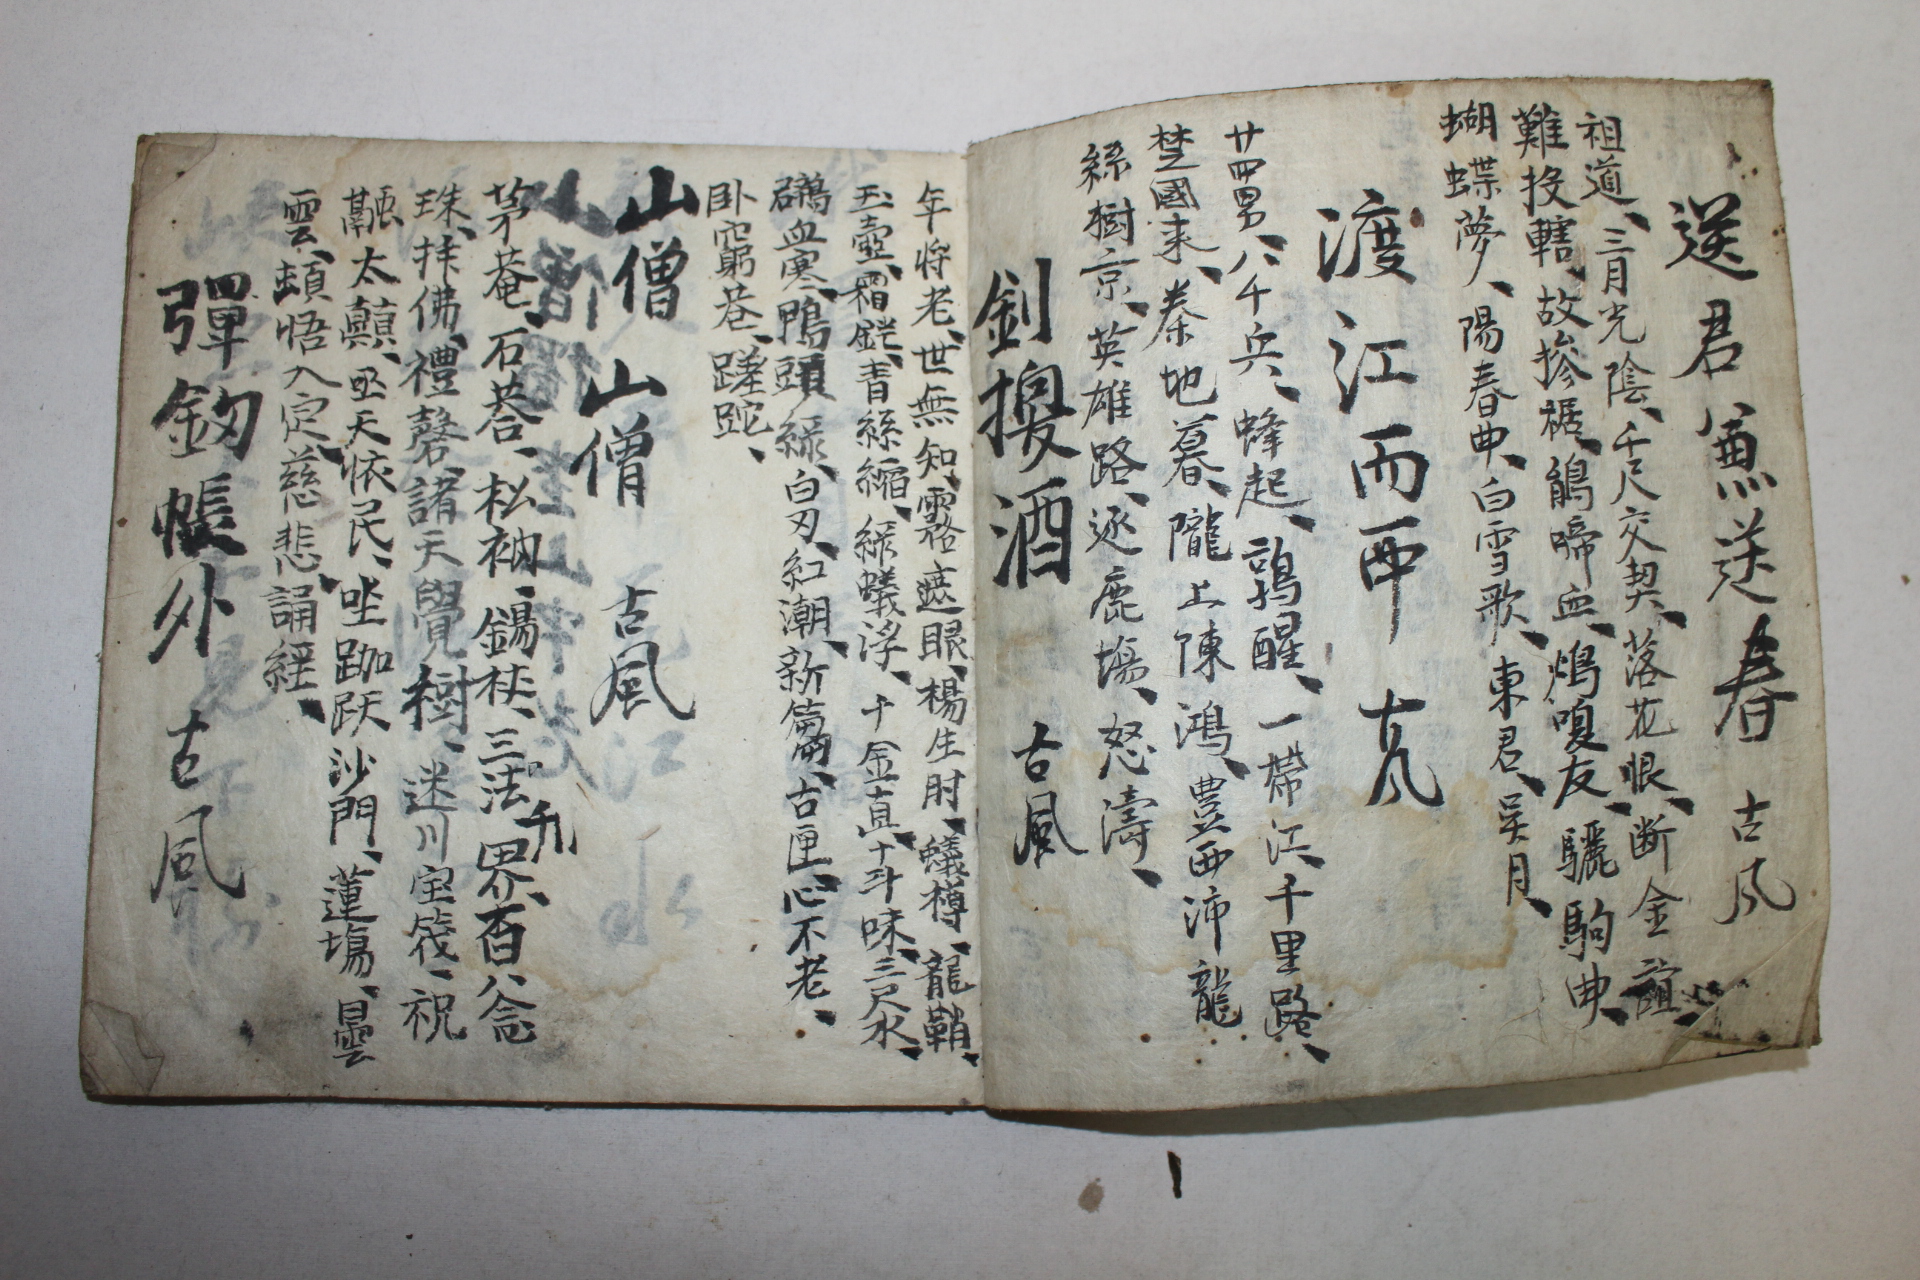 送君兼送春 古风
祖道、三月光陰、千尺交契、落花恨、断金誼、
難投轄、故摻裾、鵑啼血、鳩嗅友、驪駒曲、
蝴蝶夢、陽春曲、白雪歌、東君、吴月、
渡江而西 古风
廿四男、八千兵、蜂起、鶉醒、一帶江、千里路、
楚國来、秦地暮、隴上陳鴻、豊西沛龍
絲樹京、英雄路、逐鹿場、怒濤、
釗換酒 古風
年将老、世無知、霧遮眼、楊生肘、蟻樽、龍鞘、
玉壺、霜鋩、青絲縮、綠蟻浮、千金直、十斗味、三尺水、
鷿血寒、鴨頭綠、白刃、紅潮、新篘、古匣、心不老、
卧窮巷、蹉跎、
山僧 山僧 古風
茅菴、石菴、松衲、錫杖、三法界、百八念
珠、拝佛、禮磬、諸天覺樹、迷川宝筏、祝
融太顛、巫天依民、坐跏趺、沙門、蓮場、曇
雲、頓悟入定、慈悲、誦經、
彈釰帳外 古風